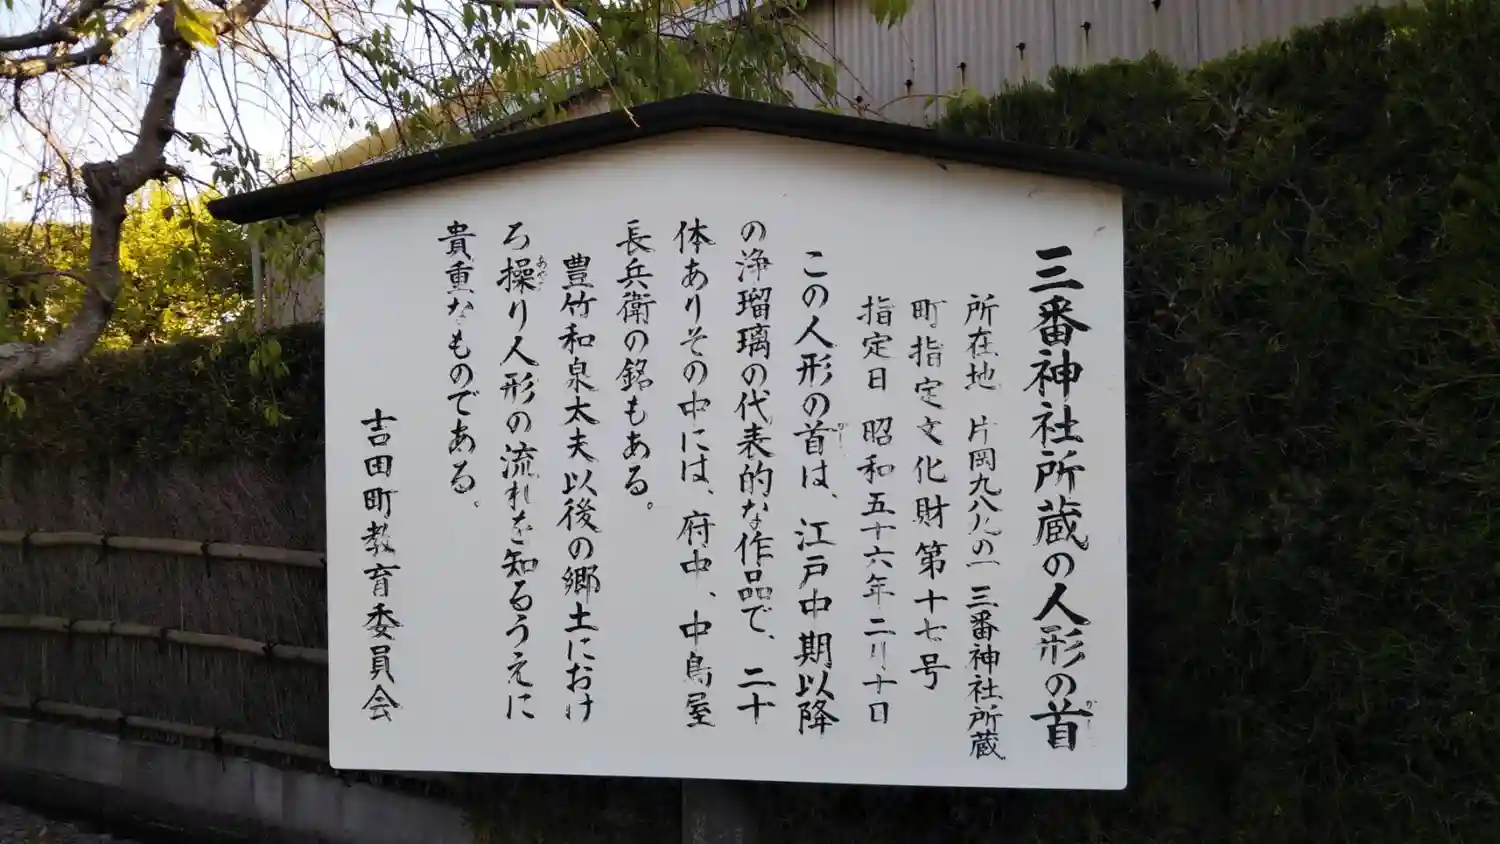 三番神社所蔵の人形の首
所在地 片岡九八九の一 三番神社所蔵
町指定文化財第十七号
指定日 昭和五十六年二月十日
この人形の首は、江戸中期以降
の浄瑠璃の代表的な作品で、二十
体ありその中には、府中、中島屋
長兵衛の銘もある。
豊竹和泉太夫以後の郷土におけ
る操り人形の流れを知るうえに
貴重なものである。
吉田町教育委員会